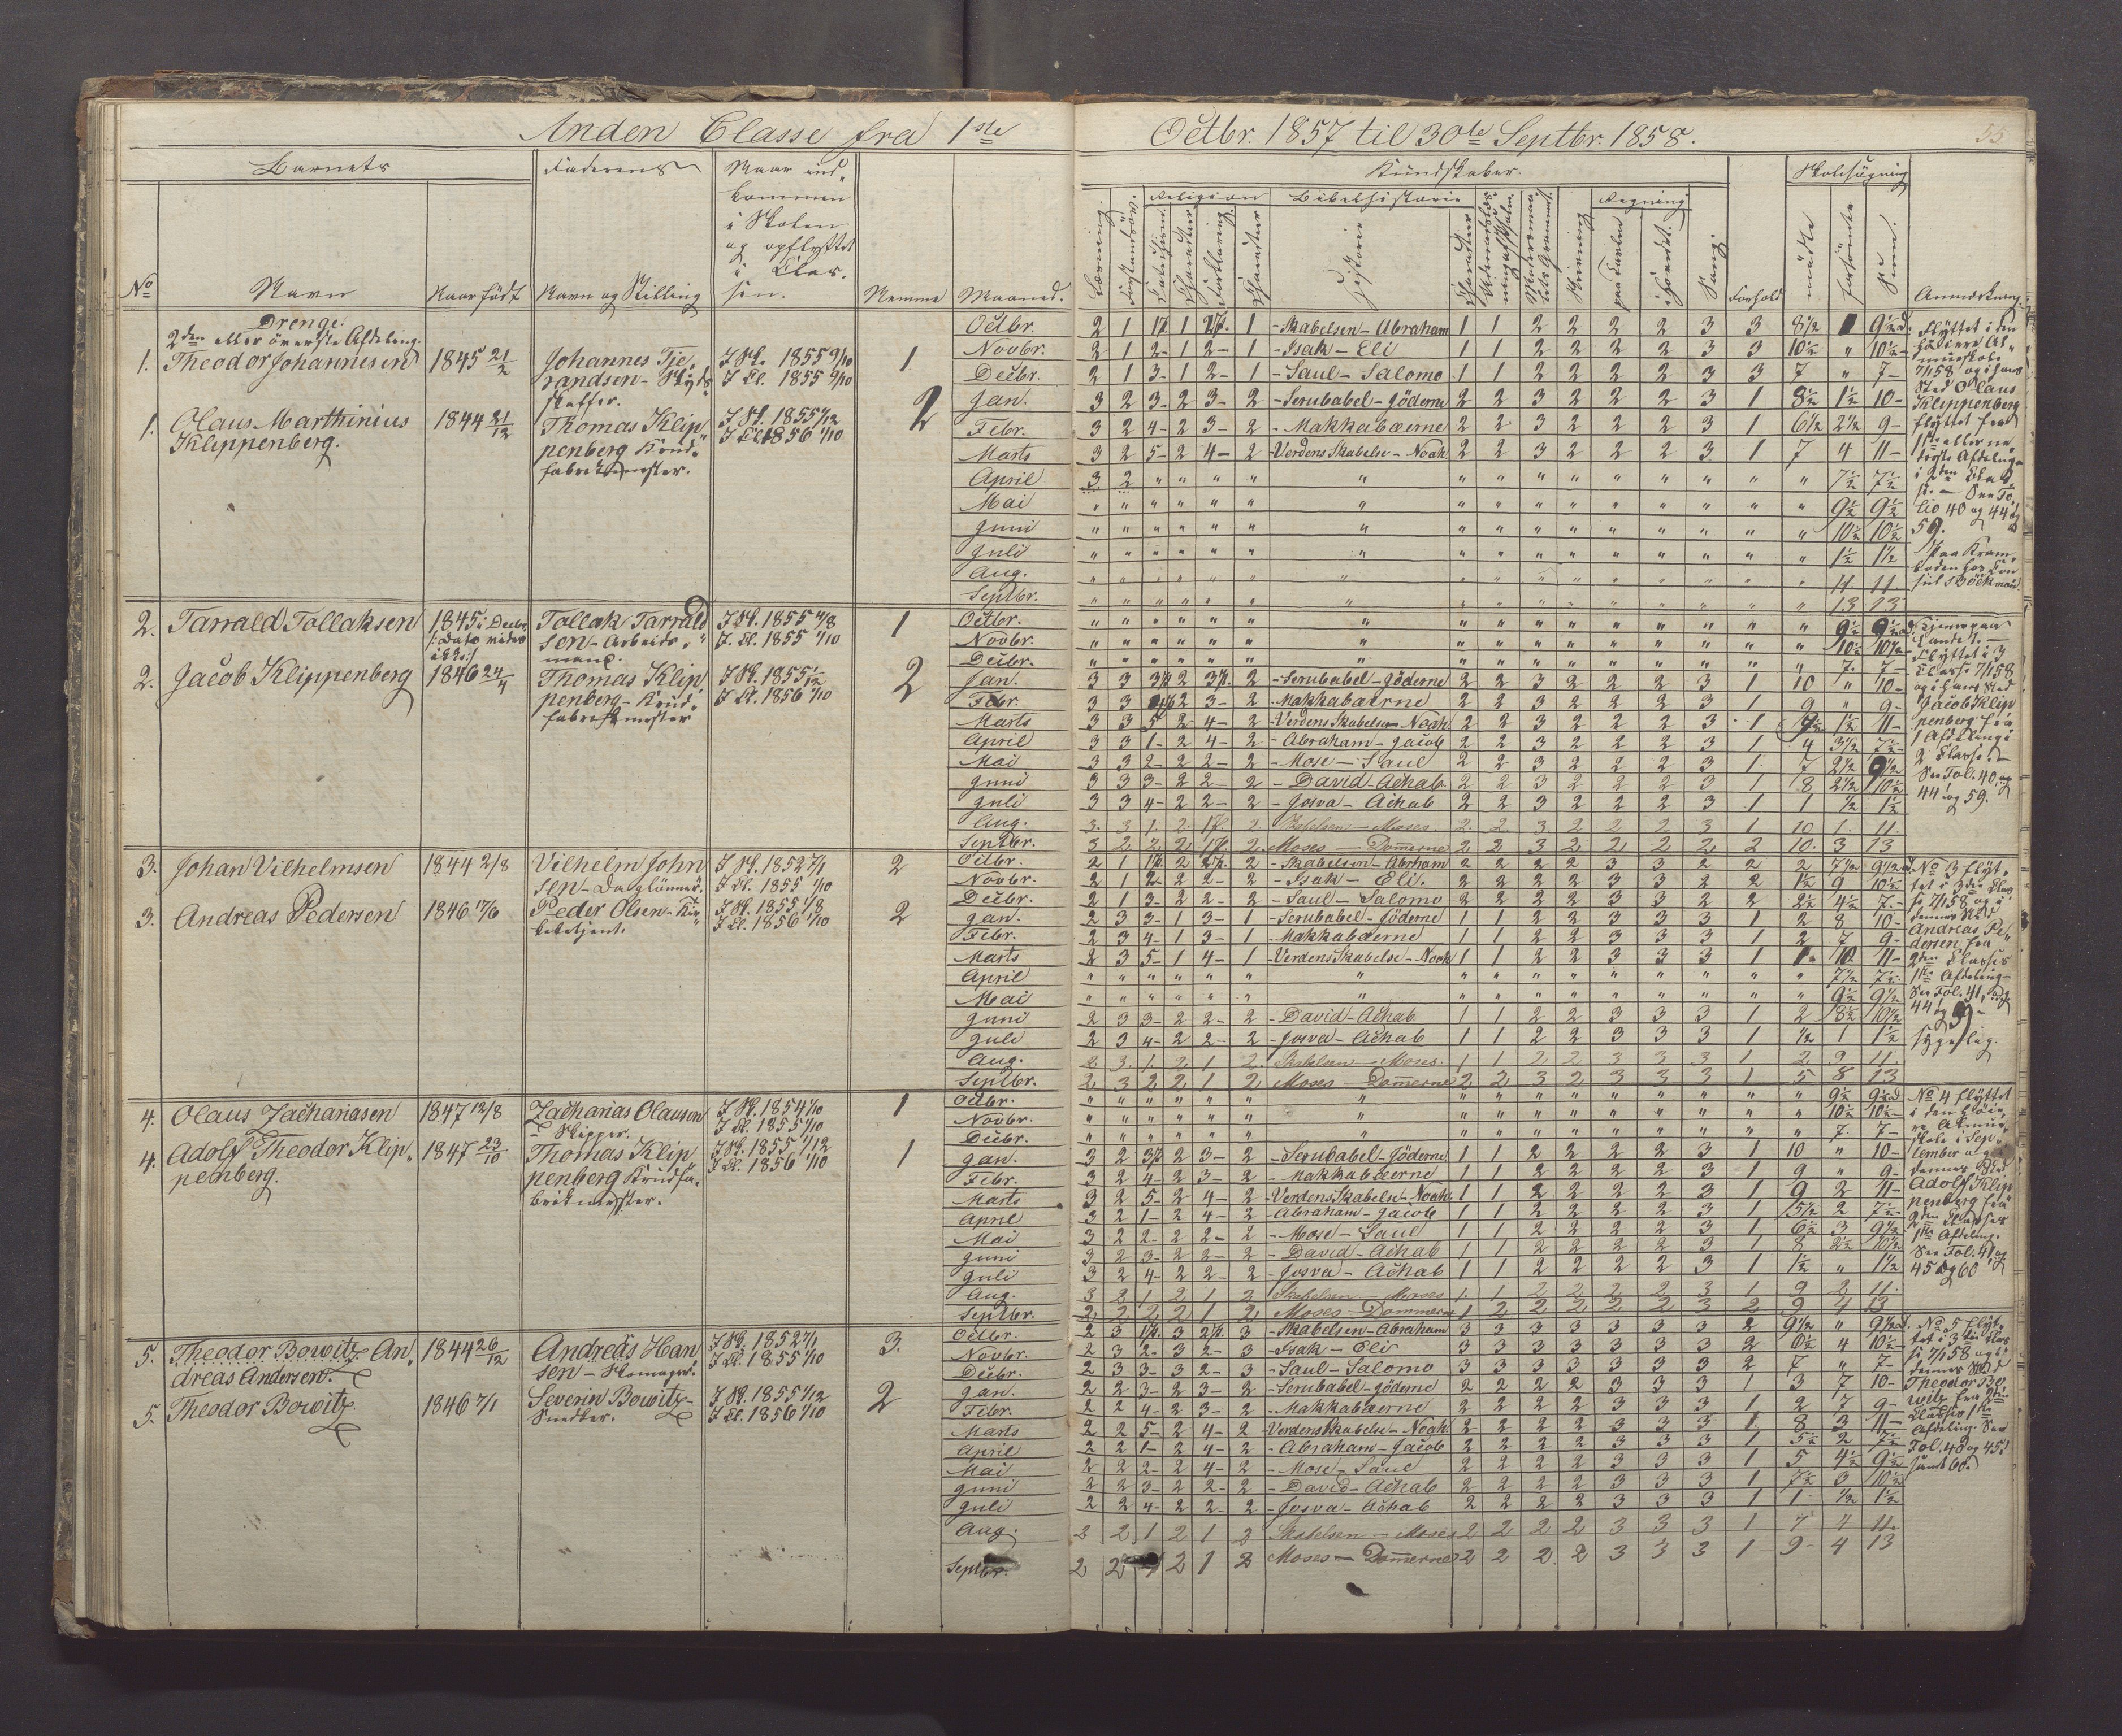 Anden Classe fra 1ste Octbr. 1857 til 30te Septbr. 1858.
55
Barnets
Faderens
Naar ind-
kommen
i Skolen
og opflyttet
i Clas-
sen.
No
Navn
Naar födt
Navn og Stilling
Nemme
Maaned.
Kundskaber.
Religion
Bibelhistorie
Regning
Skolesögning
Læsning.
Historie
Skrivning
paa Tavlen
i Hovedet.
Sang.
Forhold
mödte
forsömte
Sum.
Anmærkning.
Drenge.
2den eller överste Afdeling.
1. Theodor Johannesen
1845 21/2
Johannes Tje-
randsen - Skyds-
skaffer.
I Sk. 1855 9/10
I Cl. 1855 9/10
1
1. Olaus Marthinius
Klippenberg.
1844 21/12
Thomas Klip-
penberg Krud-
fabrikmester.
I Sk. 1855 1/12
I Cl. 1856 1/10
2
Octbr. 2 1 1½ 1 2½. 1 - Skabelsen - Abraham 1 1 2 2 2 2 3 3 8½ 9½d.
Novbr. 2 1 2- 1 2- 1 - Isak - Eli 1 1 2 2 2 2 3 3 10½ " 10½-
Decbr. 2 1 3- 1 2- 1 - Saul - Salomo 1 1 2 2 2 2 3 3 7 " 7-
Jan. 3 2 3- 2 3- 2 - Serubabel - Jöderne 2 2 3 2 2 2 3 1 8½ 1½ 10-
Febr. 3 2 4- 2 3- 2 - Makkabæerne 2 2 3 2 2 2 3 1 6½ 2½ 9-
Marts 3 2 5- 2 4- 2 - Verdens Skabelse - Noah. 2 2 3 2 2 2 3 1 7 4 11-
April 3 2 " " " " " " " " " " " " " " 7½ 7½
Mai " " " " " " " " " " " " " " " " 9½ 9½
Juni " " " " " " " " " " " " " " " " 10½ 10½
Juli " " " " " " " " " " " " " " " " 1½ 1½
Aug. " " " " " " " " " " " " " " " " 11 11
Septbr. " " " " " " " " " " " " " " " " 13 13
Flyttet i den
höiere Al-
mueskole
7/1 58 og i hans
Sted Olaus
Klippenberg
flyttet fra
1ste eller ne-
derste Afdeling
i 2den Clas-
se. - See Fo-
lio 40 og 44 og
59.
2. Tarrald Tollaksen
1845 i Decbr.
Tollak Tarrald-
sen - Arbeids-
mand.
I Sk. 1855 4/8
I Cl. 1855 1/10
1
2. Jacob Klippenberg
1846 24/4
Thomas Klip-
penberg - Krud-
fabrikmester
I Sk. 1855 1/12
I Cl. 1856 1/10
2
Octbr. " " " " " " " " " " " " " " " " 9½ 9½d
Novbr. " " " " " " " " " " " " " " " " 10½ 10½
Decbr. " " " " " " " " " " " " " " " " 7. 7-
Jan. 3 3 3½ 2 3½. 2 - Serubabel - Jöderne 2 2 3 2 2 2 3 1 10 " 10-
Febr. 3 3 2 3- 2 - Makkabæerne 2 2 3 2 2 2 3 1 9 " 9-
Marts 3 3 5 2 4- 2 - Verdens Skabelse - Noah 2 2 3 2 2 2 3 1 9½ 1½ 11-
April 3 3 1- 2 4- 2 - Abraham - Jacob 2 2 3 2 2 2 3 1 4 3½ 7½-
Mai 3 3 2- 2 2- 2 - Mose - Saul 2 2 3 2 2 2 3 1 7 2½ 9½
Juni 3 3 3- 2 2- 2 - David - Achab. 2 2 3 2 2 2 3 1 8 2½ 10½
Juli 3 3 4- 2 2- 2 - Josva - Achab 2 2 3 2 2 2 3 1 1 ½ 1½
Aug. 3. 3 1. 2. 1½. 2. Skabelsen - Moses. 2. 2. 3 2 2 2 3 1 10 1. 11.
Septbr. 3 2 2 2 1½ 2 Moses - Dommerne 2 2 3 2 2 2 2 2 10. 3 13
Flyttet i 3
Classe 7/1 58
og i hans Sted
Jacob Klip-
penberg fra
1 Afdeling i
2 Classe. -
See Fol. 40 og
44 og 59.
3. Johan Vilhelmsen
1844 2/8
Vilhelm John-
sen - Daglönner.
I Sk. 1852 7/1
I Cl. 1855 1/10
2
3. Andreas Pedersen
1846 17/6
Peder Olsen -
I Sk. 1855 1/8
I Cl. 1856 1/10
2
Octbr. 2 1 1½ 2 2½. 2 - Skabelsen - Abraham 2 2 2 2 3 3 2 2 2 7½ 9½d
Novbr. 2 1 2 2 2- 2 - Isak - Eli. 2 2 2 2 3 3 2 2 1½ 9 10½
Decbr. 2 1 3- 2 2- 2 - Saul - Salomo 2 2 2 2 3 3 2 2 2½ 4½ 7-
Jan. 2 3 3- 1 3- 1 - Serubabel - Jöderne 1 1 2 2 3 3 3 1 2 8 10-
Febr. 2 3 4- 1 3- 1 - Makkabæerne 1 1 2 2 3 3 3 1 2 7 9-
Marts 2 3 5- 1 4- 1 - Verdens Skabelse - Noah 1 1 2 2 3 3 3 1 1 10 11-
April " " " " " " " " " " " " " " " " 7½ 7½
Mai " " " " " " " " " " " " " " " " 9½ 9½
Juni 2 3 3- 2 2- 2 - David - Achab 1 1 2 2 3 3 3 1 2 8½ 10½
Juli 2 3 4- 2 2- 2 - Josva - Achab 1 1 2 2 3 3 3 1 ½ 1 1½
Aug. 2 3. 1. 2 1 2. Skabelsen - Moses. 1 1 2 2 3 3 3 1 2 9 11.
Septbr. 2 3 2 2 1 2 Moses - Dommerne 2 2 3 2 3 3 3 1 5 8 13
No 3 flyt-
tet i 3die Clas-
se 7/1 58 og i
dennes Sted
Andreas Pe-
dersen fra
2den Classes
1ste Afdeling -
See Fol. 41,
44 og 59 -
sygelig.
4. Olaus Zachariasen
1847 12/8
Zacharias Olausen
- Skipper.
I Sk. 1854 1/10
I Cl. 1855 1/10
1
4. Adolf Theodor Klip-
penberg.
1847 23/10
Thomas Klip-
penberg Krudfa-
brikmester.
I Sk. 1855 1/12
I Cl. 1856 1/10
1
Octbr. " " " " " " " " " " " " " " " " 9½ 9½d
Novbr. " " " " " " " " " " " " " " " " 10½ 10½-
Decbr. " " " " " " " " " " " " " " " " 7. 7-
Jan. 3 2 3½ 2 3- 2 - Serubabel - Jöderne 1 1 2 2 2 2 3 1 10 " 10-
Febr. 3 2 4- 2 3- 2 - Makkabæerne 1 1 2 2 2 2 3 1 9 " 9-
Marts 3 2 5- 2 4- 2 - Verdens Skabelse - Noah. 1 1 2 2 2 2 3 1 9 2 11-
April 3 2 1- 2 4- 2 - Abraham - Jacob 1 1 2 2 2 2 3 1 5½ 2 7½-
Mai 3 2 2- 2 2- 2 - Mose - Saul 1 1 2 2 2 2 3 1 6½ 3 9½
Juni 3 2 3- 2 2- 2 - David - Achab 1 1 2 2 2 2 3 1 8 2½ 10½
Juli 3 2 4- 2 2- 2 - Josva - Achab 1 1 2 2 2 2 3 1 1½ " 1½
Aug. 3 2 1 2 1 2 Skabelsen - Moses 1 1 2 2 2 2 3 1 9 2 11.
Septbr. 2 2 2 2 1 2 Moses - Dommerne 1 2 2 2 2 2 3 2 9 4 13
No 4 flyttet
i den höie-
re Almue-
skole i Sep-
tember og i
dennes Sted
Adolf Klip-
penberg fra
2den Classes
1ste Afdeling.
See Fol. 41 og
45 og 60
5. Theodor Bowitz An-
dreas Andersen.
1844 26/12
Andreas Han-
sen - Skomager.
I Sk. 1852 7/1
I Cl. 1855 1/10
3.
5. Theodor Bowitz
1846 7/1
Severin Bowitz -
Snedker.
I Sk. 1855 1/12
I Cl. 1856 1/10
2
Octbr. 2 3 1½. 3 2½. 3 - Skabelsen - Abraham 3 3 3 3 3 3 3 2 9½ " 9½d.
Novbr. 2 3 2- 3 2- 3 - Isak - Eli 3 3 3 3 3 3 3 2 6½ 4 10½
Decbr. 2 3 3- 3 2- 3 - Saul - Salomo 3 3 3 3 3 3 3 2 7 " 7-
Jan. 2 2 3- 2 3- 2 - Serubabel - Jöderne 2 2 2 2 3 3 3 1 3 7 10-
Febr. 2 2 4- 2 3- 2 - Makkabæerne 2 2 2 2 3 3 3 1 2 7 9-
Marts 2 2 5- 2 4- 2 - Verdens Skabelse - Noah. 2 2 2 2 3 3 3 1 8 3 11-
April 2 2 1- 2 4- 2 - Abraham - Jacob 2 2 2 2 3 3 3 1 5½ 2 7½
Mai 2 2 2- 2 4- 2 - Mose - Saul 2 2 2 2 3 3 3 1 5 4½ 9½
Juni 2 2 3- 2 2- 2 - David - Achab 2 2 2 2 3 3 3 1 7½ 3 10½
Juli 2 2 4- 2 2- 2 - Josva - Achab 2 2 2 2 3 3 3 1 1 ½ 1½
Aug. 2 2 1 2 1 2 Skabelsen - Moses 2 2 2 2 3 3 3 1 7 4 11.
Septbr. 2 2 2 1 2 Moses - Dommerne 2 2 2 2 3 3 3 1 9 4 13
No 5 flyt-
tet i 3die Clas-
se 7/1 58 og i
dennes Sted
Theodor Bo-
witz fra 2den
Classes 1ste
Afdeling. See
Fol. 40 og 45
samt 60.